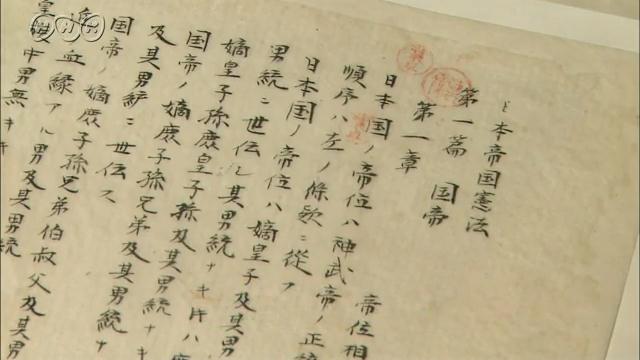 日本帝国憲法
第一篇 国帝
第一章 帝位相
日本国ノ帝位ハ神武帝ノ正統
順序ハ左ノ條款ニ從フ
日本国ノ帝位ハ嫡皇子及其男
男統ニ世伝シ其男統ナキ片ハ庶
嫡皇子孫庶皇子孫及其男統ナキ
国帝ノ嫡庶子孫兄弟及其男統ナ
及其男統ニ世伝ス
国帝ノ嫡庶子孫兄弟伯叔父及其男
近血縁アル男及其男統
中男無キ
NHK